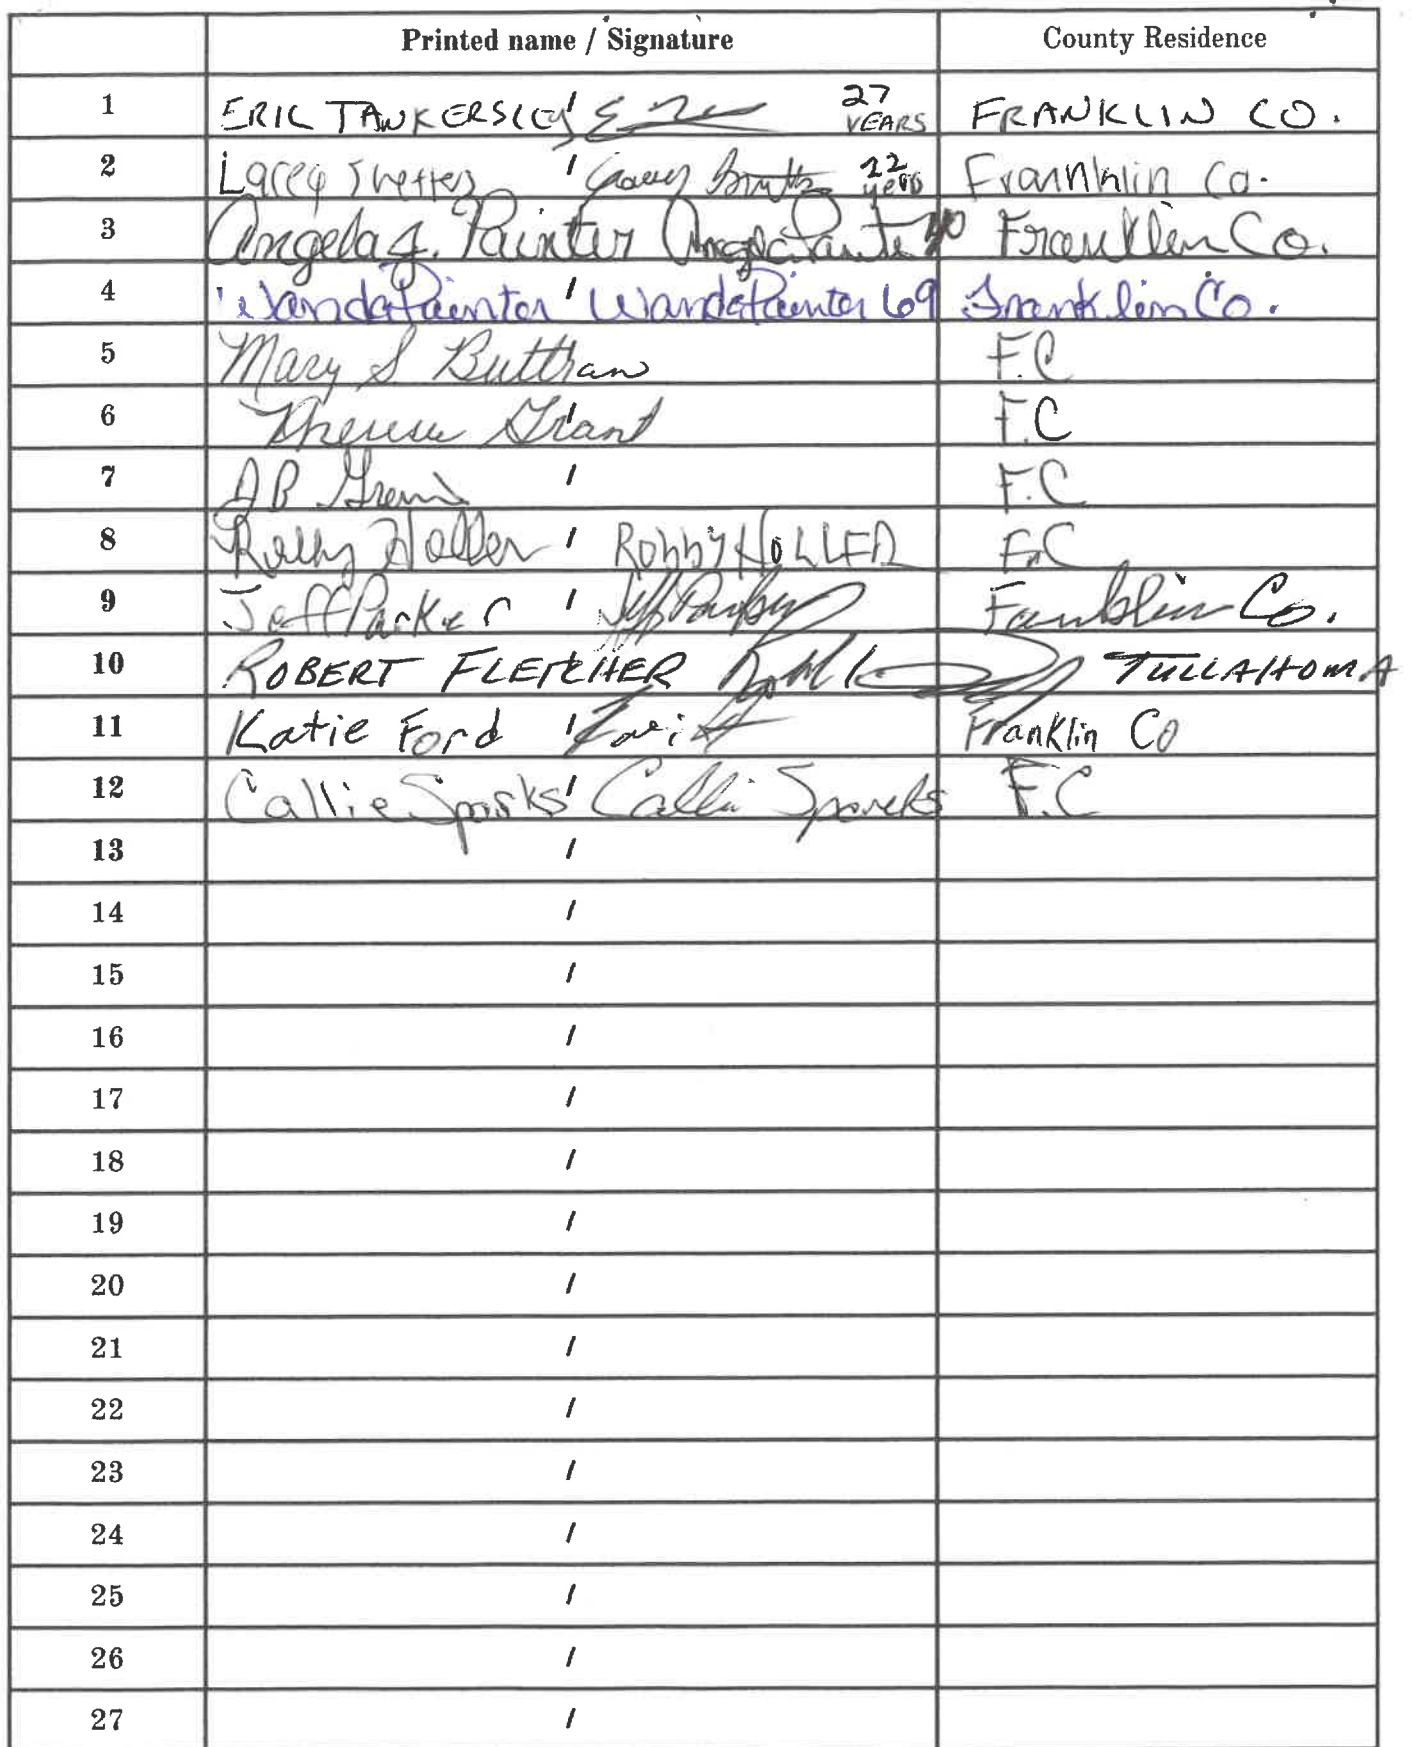 Printed name / Signature County Residence
1 ERIC TANKERSLEY / 27 YEARS FRANKLIN CO.
2 Lacey / 22 years Franklin Co.
3 Angela J. Painter Angela Painter 40 Franklin Co.
4 Wanda Painter / Wanda Painter 69 Franklin Co.
5 Mary S Buttram F.C
6 Theresa Grant / F.C
7 JB / F.C
8 Robby Holler / Robby HOLLER F.C
9 Jeff Parker / Jeff Parker Franklin Co.
10 ROBERT FLETCHER TULLAHOMA
11 Katie Ford / Franklin Co
12 Callie Sparks / Callie Sparks F.C
13 /
14 /
15 /
16 /
17 /
18 /
19 /
20 /
21 /
22 /
23 /
24 /
25 /
26 /
27 /